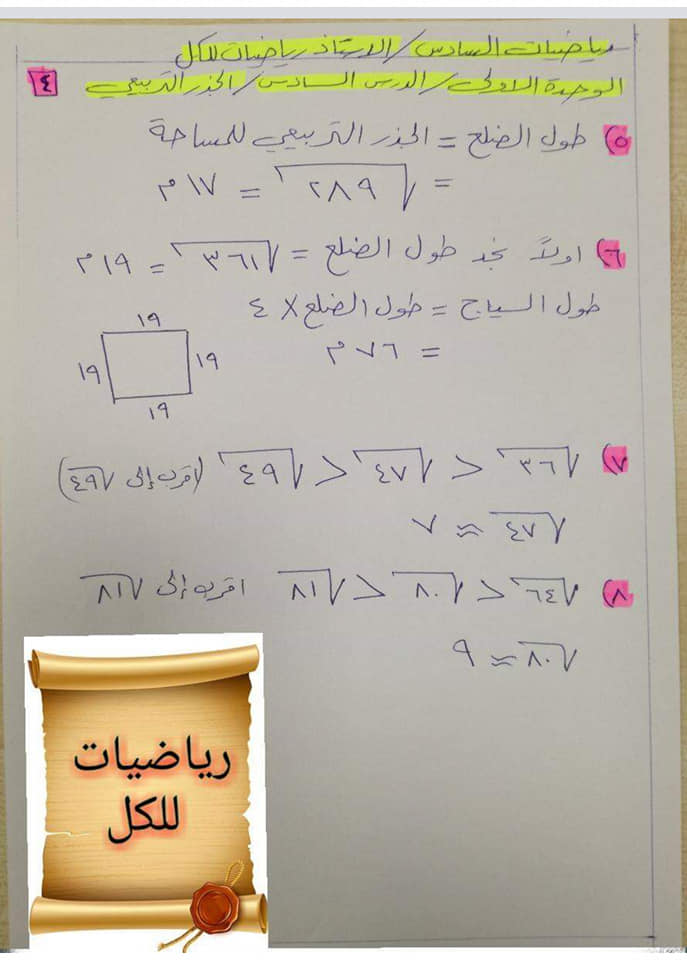 رياضيات السادس / الاستاذ رياضيات للكل
الوحدة الاولى / الدرس السادس / الجذر التربيعي
٤
٥) طول الضلع = الجذر التربيعي للمساحة
= √٢٨٩ = ١٧ م
٦) اولاً نجد طول الضلع = √٣٦١ = ١٩ م
طول السياج = طول الضلع × ٤
= ٧٦ م
١٩
١٩
١٩
١٩
٧) √٣٦ < √٤٧ < √٤٩ (اقرب إلى √٤٩)
√٤٧ ≈ ٧
٨) √٦٤ < √٨٠ < √٨١ اقرب إلى √٨١
√٨٠ ≈ ٩
رياضيات
للكل